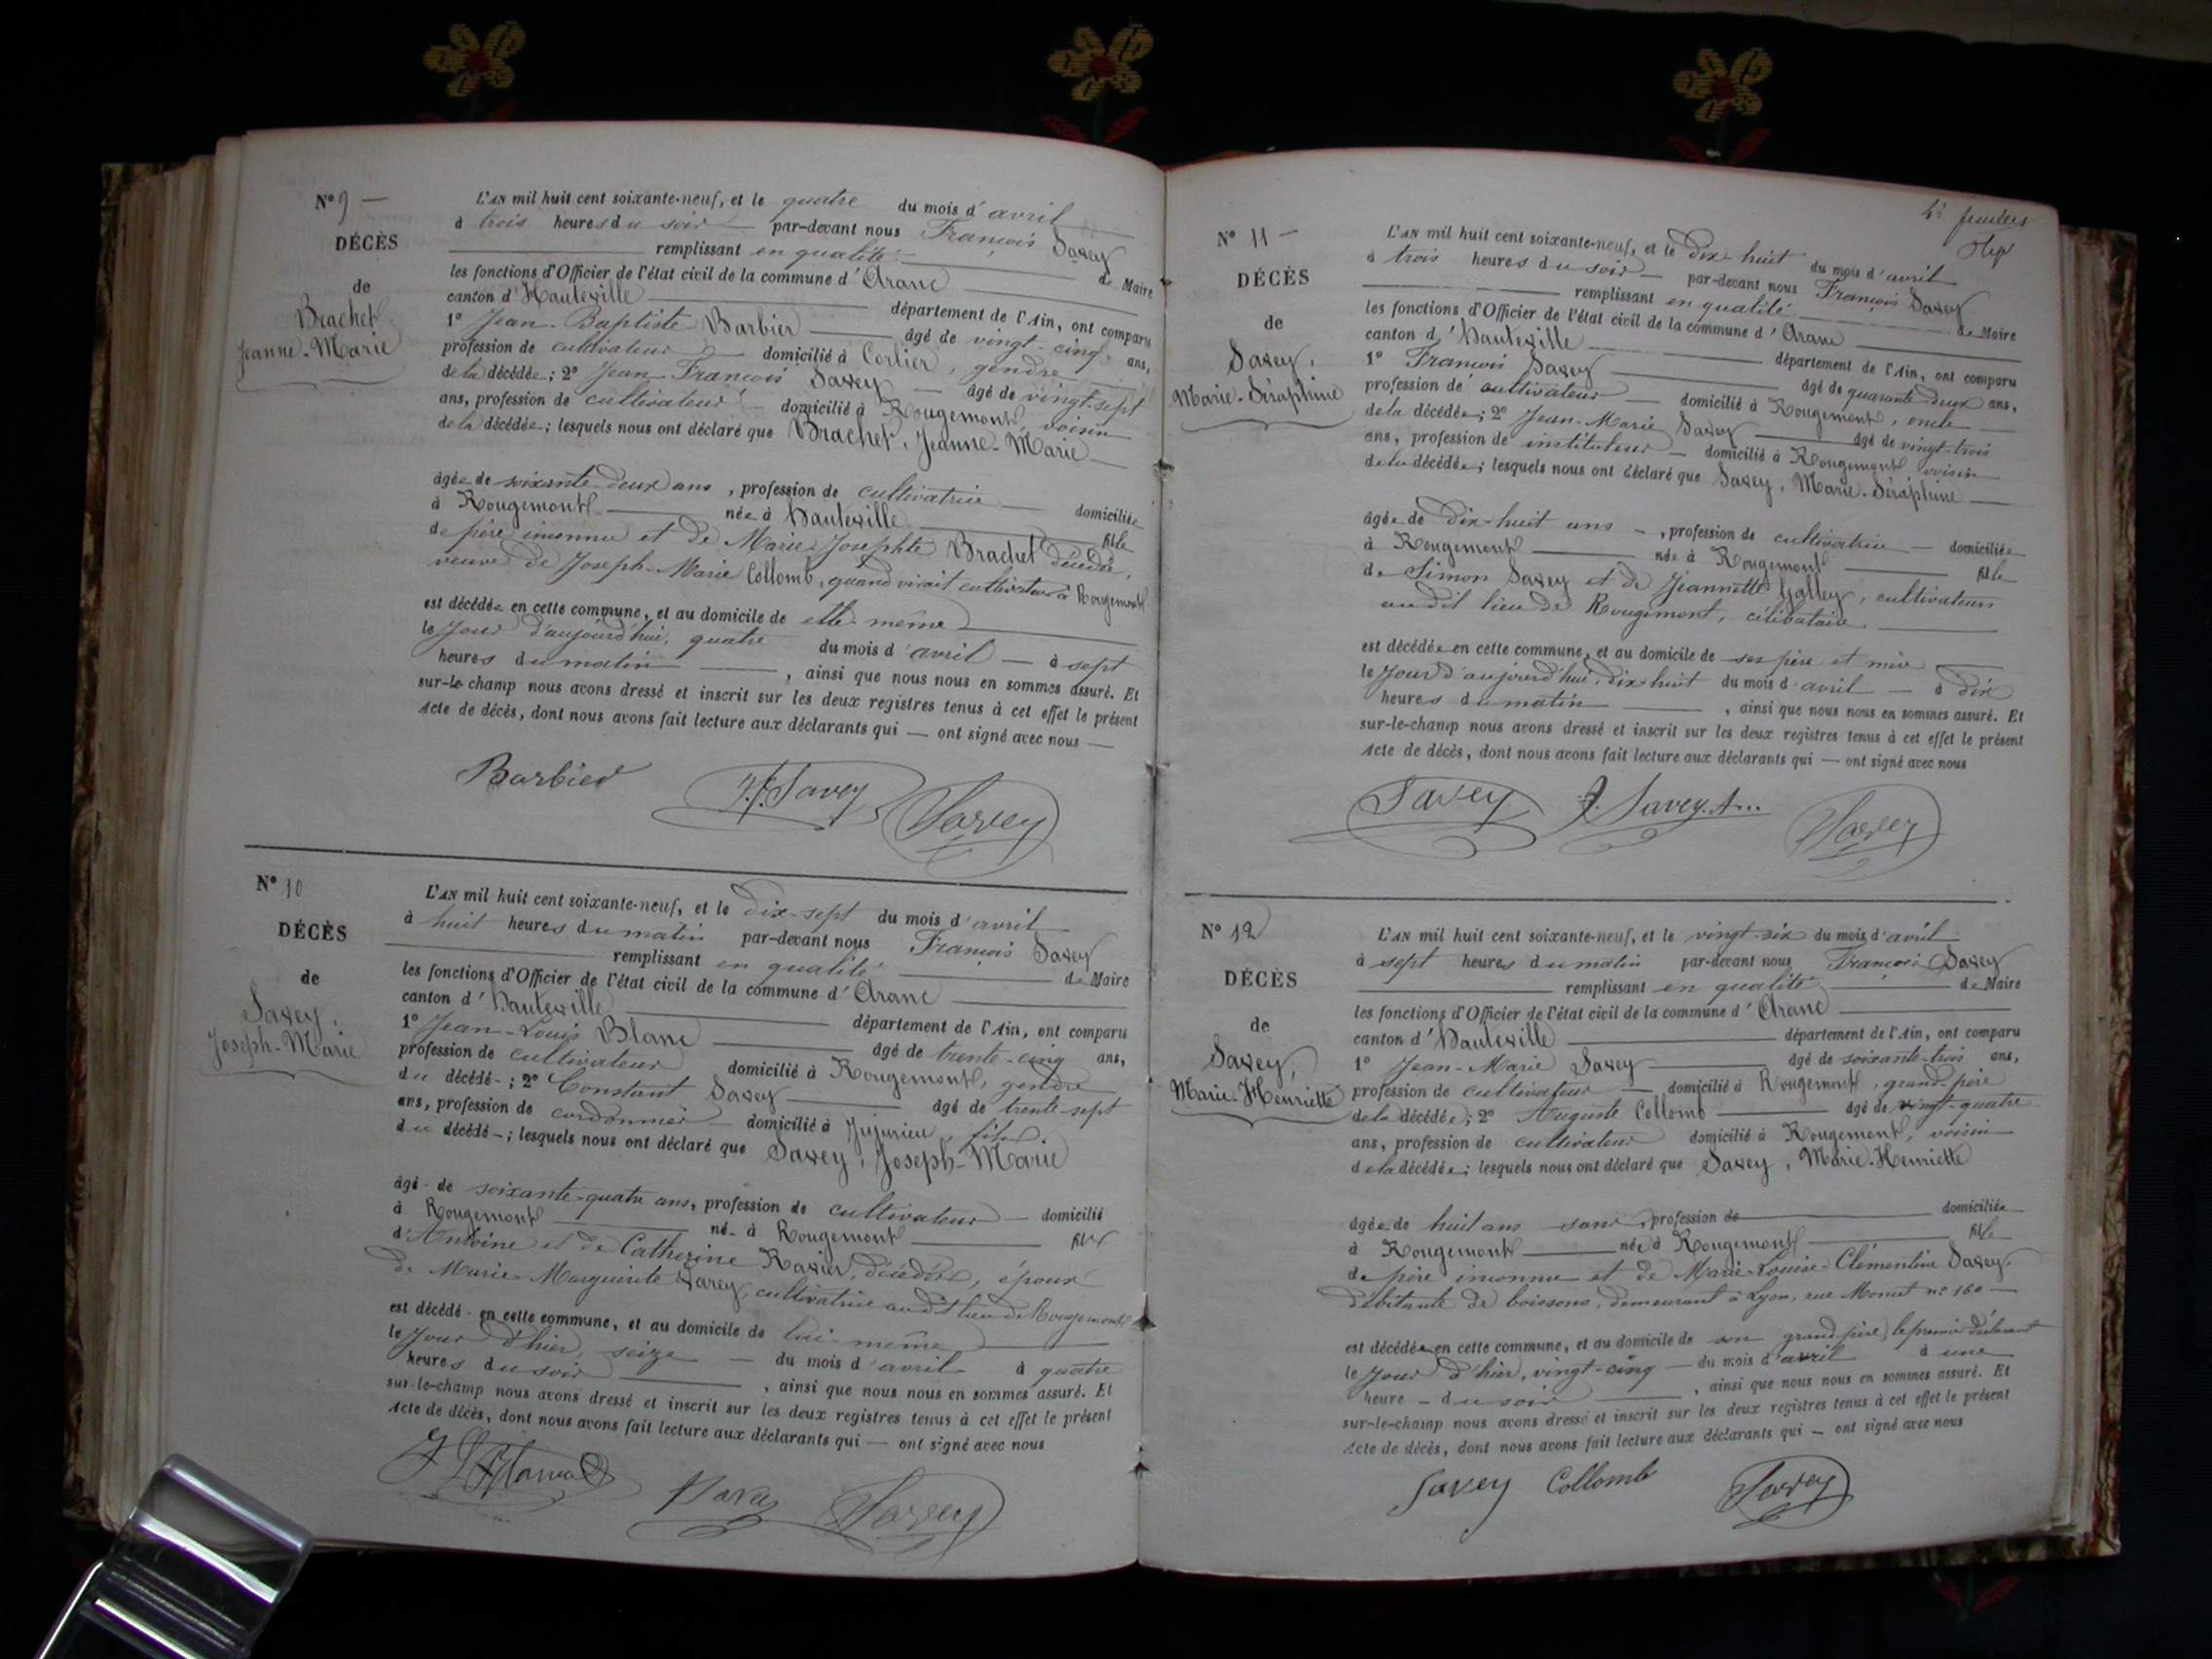 N° 9 —
DÉCÈS
de
Brachet
Jeanne-Marie
L'AN mil huit cent soixante-neuf, et le quatre du mois d'avril
à trois heures du soir par-devant nous François Savey
remplissant en qualité de Maire
les fonctions d'Officier de l'état civil de la commune d'Aranc
canton d'Hauteville département de l'Ain, ont comparu
1° Jean-Baptiste Barbier âgé de vingt-cinq ans,
profession de cultivateur domicilié à Corlier, gendre
de la décédée; 2° Jean-François Savey âgé de vingt-sept
ans, profession de cultivateur domicilié à Rougemont, voisin
de la décédée; lesquels nous ont déclaré que Brachet, Jeanne-Marie
âgée de soixante deux ans, profession de cultivatrice domiciliée
à Rougemont née à Hauteville fille
de père inconnu et de Marie Josephte Brachet décédée,
veuve de Joseph-Marie Collomb, quand vivait cultivateur à Rougemont
est décédée en cette commune, et au domicile de elle même
le Jour d'aujourd'hui, quatre du mois d'avril — à sept
heures du matin, ainsi que nous nous en sommes assuré. Et
sur-le-champ nous avons dressé et inscrit sur les deux registres tenus à cet effet le présent
Acte de décès, dont nous avons fait lecture aux déclarants qui — ont signé avec nous —
Barbier J.f. Savey Savey
N° 10
DÉCÈS
de
Savey,
Joseph-Marie
L'AN mil huit cent soixante-neuf, et le dix-sept du mois d'avril
à huit heures du matin par-devant nous François Savey
remplissant en qualité de Maire
les fonctions d'Officier de l'état civil de la commune d'Aranc
canton d'Hauteville département de l'Ain, ont comparu
1° Jean-Louis Blanc âgé de trente-cinq ans,
profession de cultivateur domicilié à Rougemont, gendre
du décédé-; 2° Constant Savey âgé de trente-sept
ans, profession de cordonnier domicilié à Jujurieu, fils
du décédé-; lesquels nous ont déclaré que Savey, Joseph-Marie
âgé- de soixante-quatre ans, profession de cultivateur — domicilié
à Rougemont né- à Rougemont fils
d'Antoine et de Catherine Ravier, décédés, époux
de Marie-Marguerite Savey, cultivatrice audit lieu de Rougemont
est décédé- en cette commune, et au domicile de lui même
le Jour d'hier, seize — du mois d'avril à quatre
heures du soir, ainsi que nous nous en sommes assuré. Et
sur-le-champ nous avons dressé et inscrit sur les deux registres tenus à cet effet le présent
Acte de décès, dont nous avons fait lecture aux déclarants qui — ont signé avec nous
Savey Savey
feuillet
N° 11 —
DÉCÈS
de
Savey,
Marie-Séraphine
L'AN mil huit cent soixante-neuf, et le dix-huit du mois d'avril
à trois heures du soir — par-devant nous François Savey
remplissant en qualité de Maire
les fonctions d'Officier de l'état civil de la commune d'Aranc
canton d'Hauteville département de l'Ain, ont comparu
1° François Savey âgé de quarante deux ans,
profession de cultivateur — domicilié à Rougemont, oncle
de la décédée; 2° Jean-Marie Savey âgé de vingt-trois
ans, profession de instituteur — domicilié à Rougemont voisin
de la décédée; lesquels nous ont déclaré que Savey, Marie-Séraphine —
âgée de dix-huit ans —, profession de cultivatrice — domiciliée
à Rougemont née à Rougemont fille
de Simon Savey et de Jeannette Galley, cultivateurs
audit lieu de Rougemont, célibataire
est décédée en cette commune, et au domicile de ses père et mère
le Jour d'aujourd'hui, dix huit du mois d'avril — à dix
heures du matin, ainsi que nous nous en sommes assuré. Et
sur-le-champ nous avons dressé et inscrit sur les deux registres tenus à cet effet le présent
Acte de décès, dont nous avons fait lecture aux déclarants qui — ont signé avec nous
Savey J. Savey Savey
N° 12
DÉCÈS
de
Savey,
Marie-Henriette
L'AN mil huit cent soixante-neuf, et le vingt-six du mois d'avril
à sept heures du matin par-devant nous François Savey
remplissant en qualité de Maire
les fonctions d'Officier de l'état civil de la commune d'Aranc
canton d'Hauteville département de l'Ain, ont comparu
1° Jean-Marie Savey âgé de soixante-trois ans,
profession de cultivateur — domicilié à Rougemont, grand-père
de la décédée; 2° Auguste Collomb âgé de vingt-quatre
ans, profession de cultivateur domicilié à Rougemont, voisin
de la décédée; lesquels nous ont déclaré que Savey, Marie-Henriette
âgée de huit ans sans profession de domiciliée
à Rougemont née à Rougemont fille
de père inconnu et de Marie-Louise-Clémentine Savey,
débitante de boissons, demeurant à Lyon, rue n° 160 —
est décédée en cette commune, et au domicile de son grand père, le premier déclarant
le Jour d'hier, vingt-cinq — du mois d'avril à une
heure - du soir, ainsi que nous nous en sommes assuré. Et
sur-le-champ nous avons dressé et inscrit sur les deux registres tenus à cet effet le présent
Acte de décès, dont nous avons fait lecture aux déclarants qui — ont signé avec nous
Savey Collomb Savey